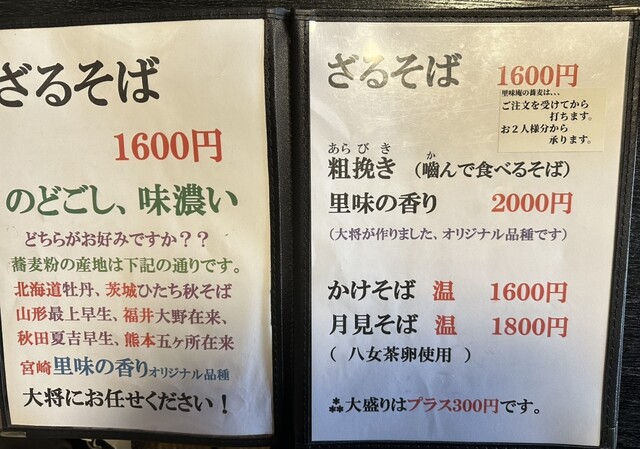 ざるそば
1600円
のどごし、味濃い
どちらがお好みですか？？
蕎麦粉の産地は下記の通りです。
北海道牡丹、茨城ひたち秋そば
山形最上早生、福井大野在来、
秋田夏吉早生、熊本五ヶ所在来
宮崎里味の香りオリジナル品種
大将にお任せください！
ざるそば 1600円
里味庵の蕎麦は、、、
ご注文を受けてから
打ちます。
お２人様分から
承ります。
あらびき か
粗挽き（嚙んで食べるそば）
里味の香り 2000円
（大将が作りました、オリジナル品種です）
かけそば 温 1600円
月見そば 温 1800円
（ 八女茶卵使用 ）
⁂大盛りはプラス300円です。